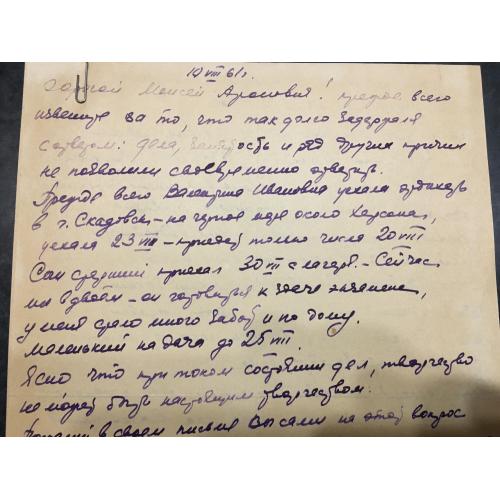 10 VIII 61 г.
Дорогой Моисей Аронович! прежде всего
извените за то, что так долго задержался
с ответом: дела, занятость и ряд других причин
не позволили своевременно ответить.
Прежде всего Валентина Ивановна уехала отдыхать
в г. Скадовск - на Черное море около Херсона,
уехала 23 VII - приедет только числа 20 VIII
Сын средний приехал 30 VII с лагеря. - Сейчас
мы вдвоем - он готовится к сдаче экзамена,
у меня сразу много забот и по дому.
Маленький на даче до 25 VIII.
Ясно что при таком состоянии дел, творчество
не может быть настоящим творчеством.
в своем письме Вы сами на этот вопрос